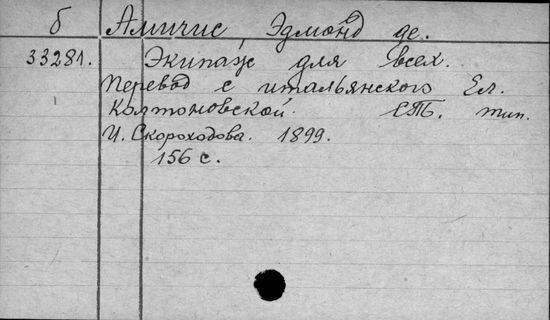 б Амичис, Эдмондо де.
33281. Экипаж для всех.
Перевод с итальянского Ел.
Колтоновской. СПб. тип.
И. Скороходова. 1899.
156 с.